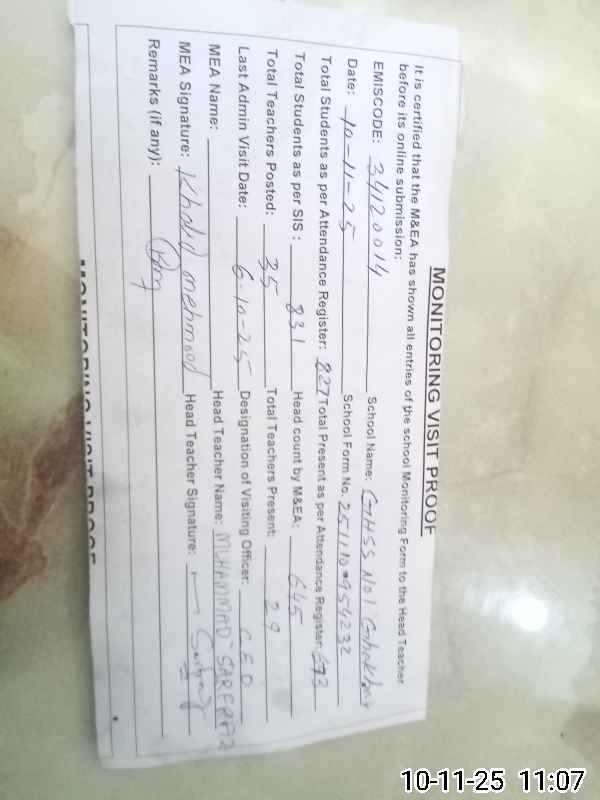 MONITORING VISIT PROOF
It is certified that the M&EA has shown all entries of the school Monitoring Form to the Head Teacher
before its online submission:
EMISCODE: 34120014 School Name: GHSS No 1
Date: 10-11-25 School Form No.
Total Students as per Attendance Register: 827 Total Present as per Attendance Register: 673
Total Students as per SIS : 831 Head count by M&EA: 645
Total Teachers Posted: 35 Total Teachers Present: 29
Last Admin Visit Date: 6-10-25 Designation of Visiting Officer: C.E.O
MEA Name: Khalid mehmood Head Teacher Name: MUHAMMAD SARFRAZ
MEA Signature: Head Teacher Signature:
Remarks (if any):
MONITORING VISIT PROOF
10-11-25 11:07